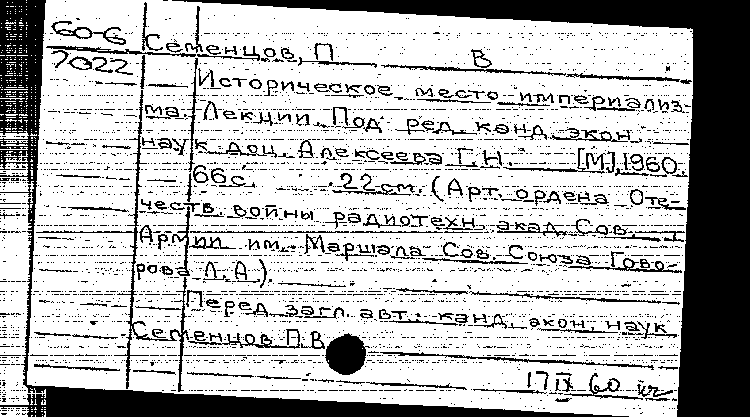 60-6 Семенцов, П В
7022
Историческое место империализ-
ма. Лекции. Под ред. канд. экон.
наук доц. Алексеева Г.Н. [М], 1960.
66с. 22см. (Арт. ордена Оте-
честв. войны радиотехн. акад. Сов.
Армии им. Маршала Сов. Союза Гово-
рова Л.А.).
Перед загл. авт.: канд. экон. наук
Семенцов П.В.
17 IX 60